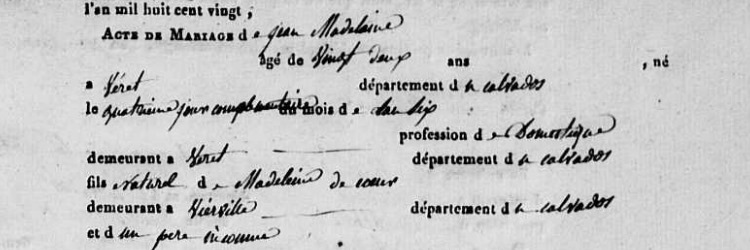 l'an mil huit cent vingt ;
ACTE DE MARIAGE de jean Madeleine
âgé de Vingt deux ans , né
a Véret département du calvados
le quatrieme jour complementaire du mois de l'an six
profession de Domestique
demeurant a Veret département du calvados
fils naturel de Madeleine de coeur
demeurant a Vierville département du calvados
et d'un pere inconnu